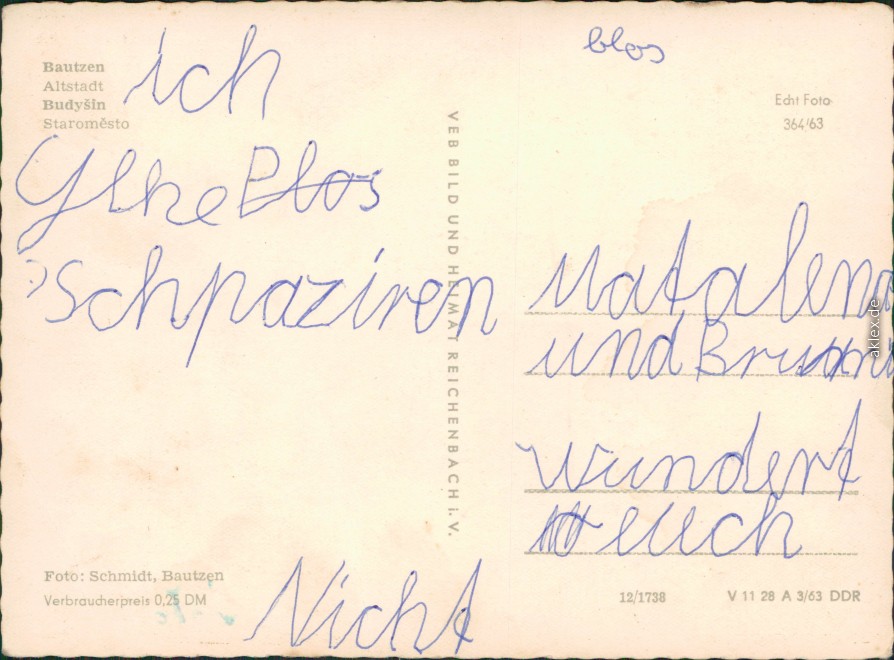 Bautzen
Altstadt
Budyšin
Staroměsto
ich
gehe Blos
schpaziren
Foto: Schmidt, Bautzen
Verbraucherpreis 0,25 DM
Nicht
VEB BILD UND HEIMAT REICHENBACH i. V.
blos
Echt Foto
364/63
Matalena
und
wundert
euch
12/1738
V 11 28 A 3/63 DDR
aklex.de